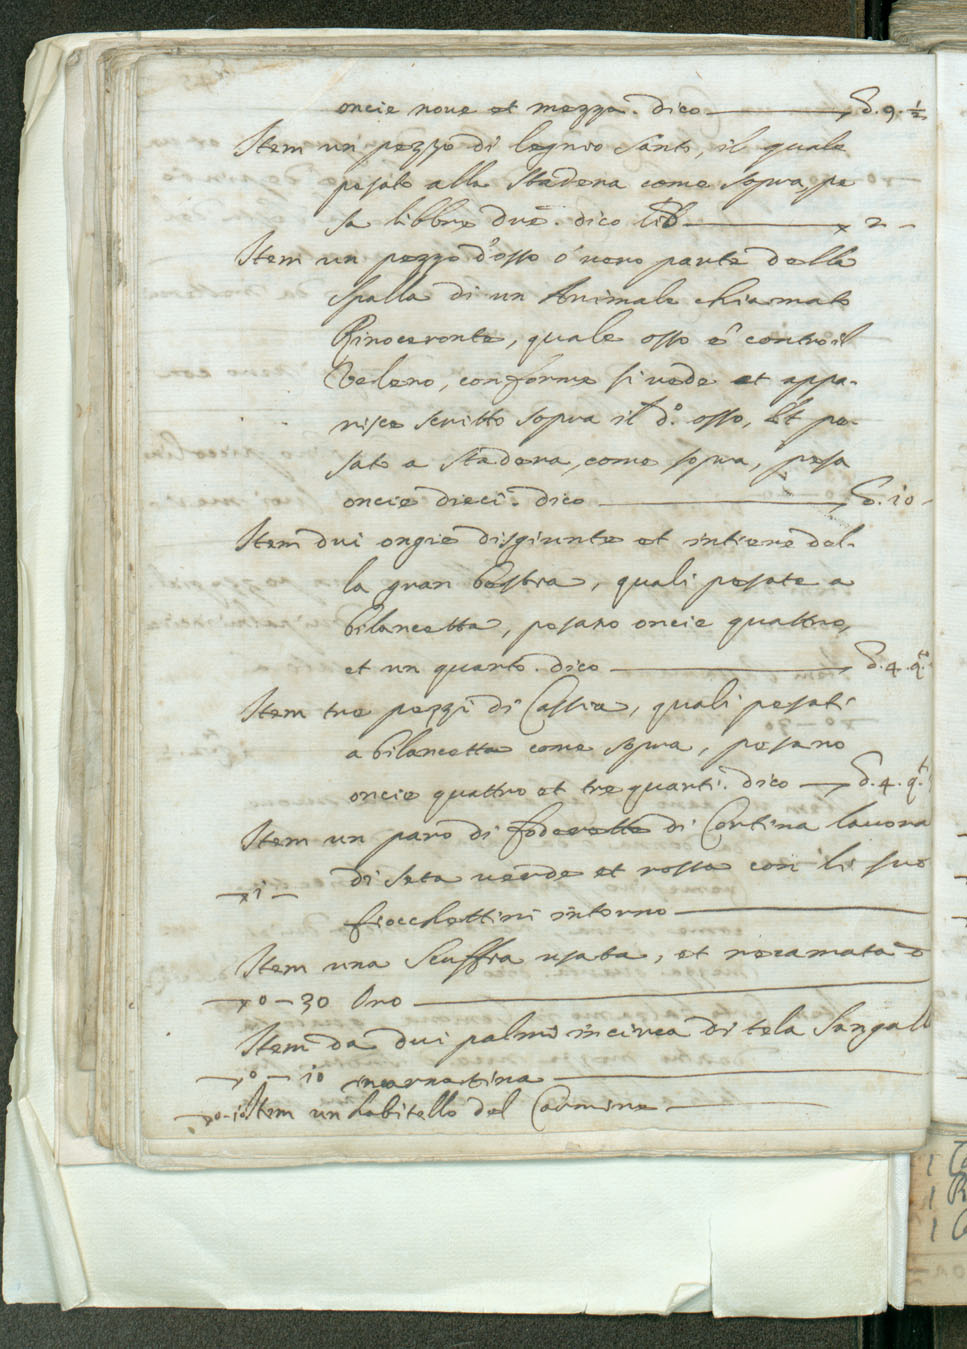 oncie noue et mezza. dico — ℥. 9. ½
Item un pezzo di legno Santo, il quale
pesato alla Stadera come sopra, pe
sa libbre due. dico lib — x 2 -
Item un pezzo d'osso ó uero parte della
Spalla di un Animale chiamato
Rinoceronte, quale osso é contro il
Veleno, conforme si uede et appa-
risce scritto sopra il d.º osso, Et pe-
sato a Stadera, come sopra, pesa
oncie dieci. dico — ℥. 10 -
Item dui ongie disgiunte et intiere del-
la gran bestia, quali pesate a
bilancetta, pesano oncie quattro,
et un quarto. dico — ℥. 4. q.to
Item tre pezzi di Cassia, quali pesati
a bilancetta come sopra, pesano
oncie quattro et tre quarti. dico — ℥. 4. q.ti
Item un paro di foderette di Cortina lauora
di Seta uerde et rossa con li suo
— x 1 —
fiocchettini intorno —
Item una Scuffia usata, et recamata
— x 0 — 30 Oro —
Item da dui palmi incirca di tela Sangall
— x 0 — 10 incarnatina —
Item un habitello del Carmine —